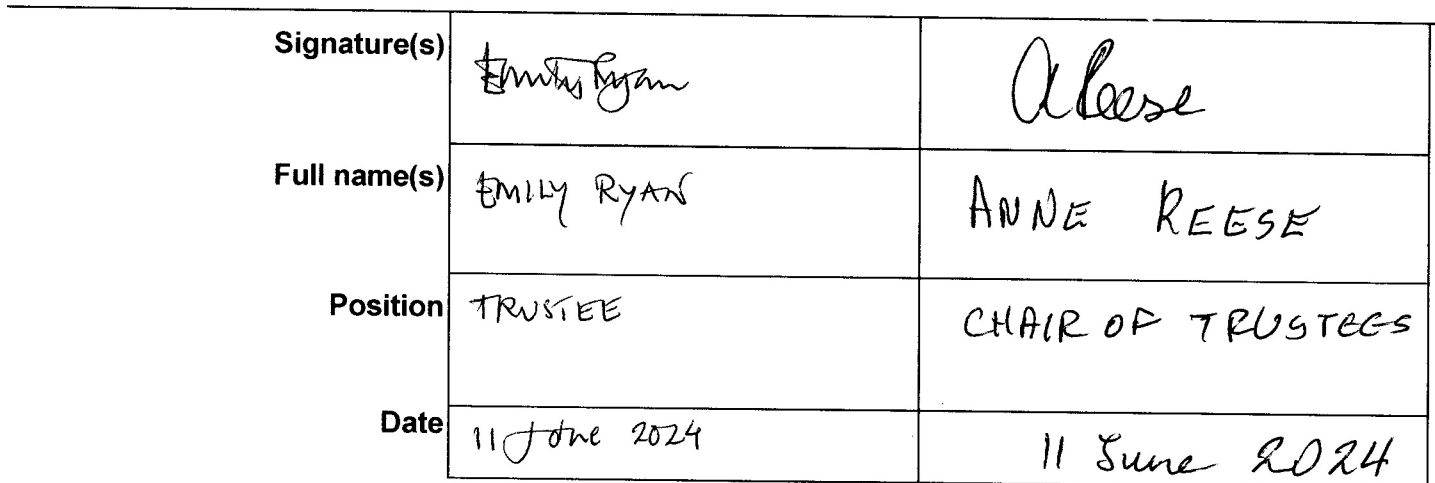 Signature(s) Emily Ryan A Reese
Full name(s) EMILY RYAN ANNE REESE
Position TRUSTEE CHAIR OF TRUSTEES
Date 11 June 2024 11 June 2024